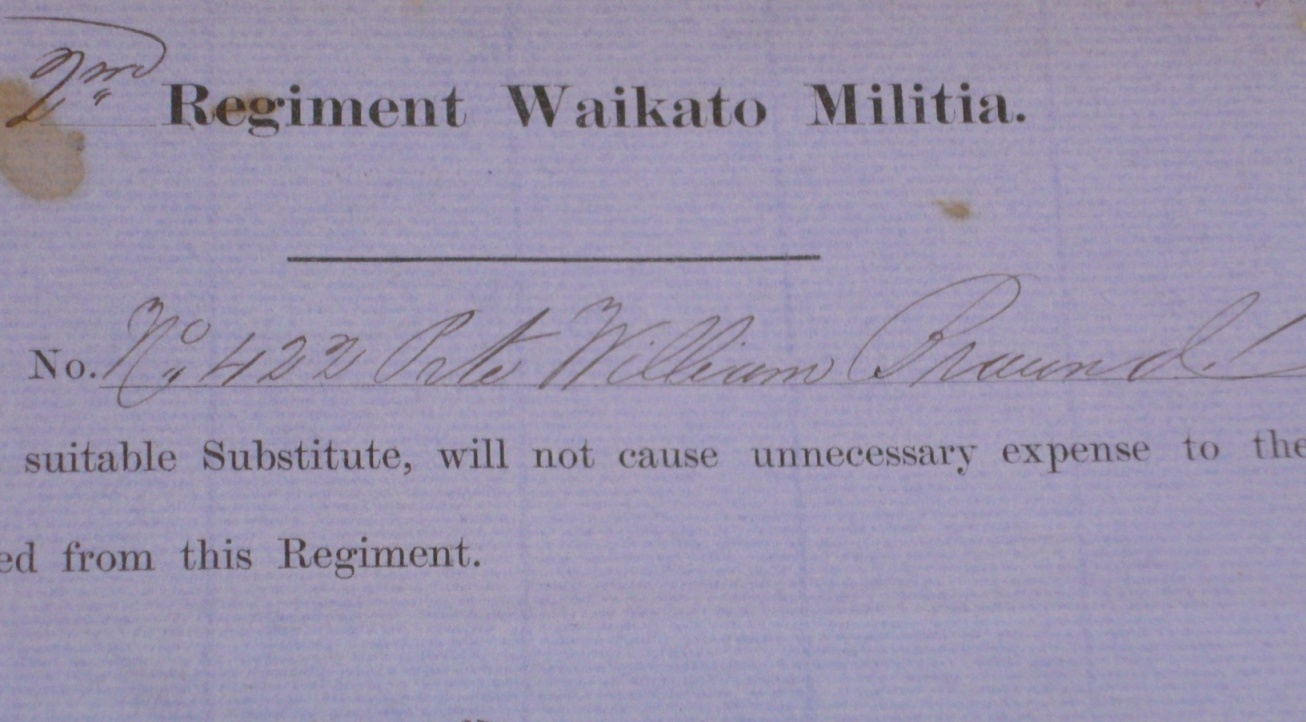 2nd Regiment Waikato Militia.
No. No 422 Pvte William Braund.
suitable Substitute, will not cause unnecessary expense to the
ed from this Regiment.